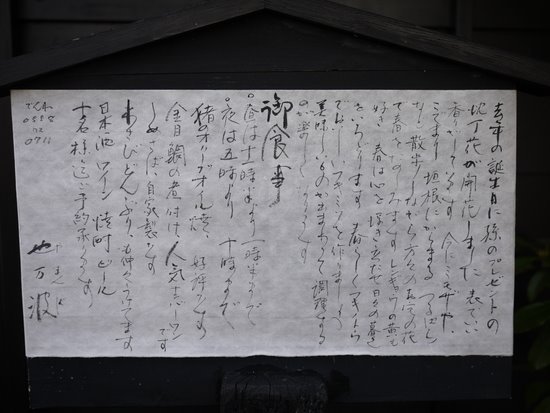 去年の誕生日に孫のプレゼントの
沈丁花が開花しました 表でいい
香りがしています 今にミモザや
こでまり 垣根にからまる つるばら
散歩しながら 方々の
春を レンギョウの黄も
好き 春は心を浮き立たせ 日々の暮し
をいろどります 春らしく
でんぶ フキミソを作りましょう
美味しいもの 調理する
のが楽しくなります
御食事
○昼は十一時半より 一時半まで
○夜は五時より 十時まで、
猪のオーブオイル焼、 好評です
金目鯛の煮付は、人気ナンバーワンです
しめさば、自家製です
わさびどんぶり、も仲々うけてます
日本酒 ワイン 焼酎 ビール
十名様迄ご予約承ります
でんわ
0558
72
0711
やまんば
也万波